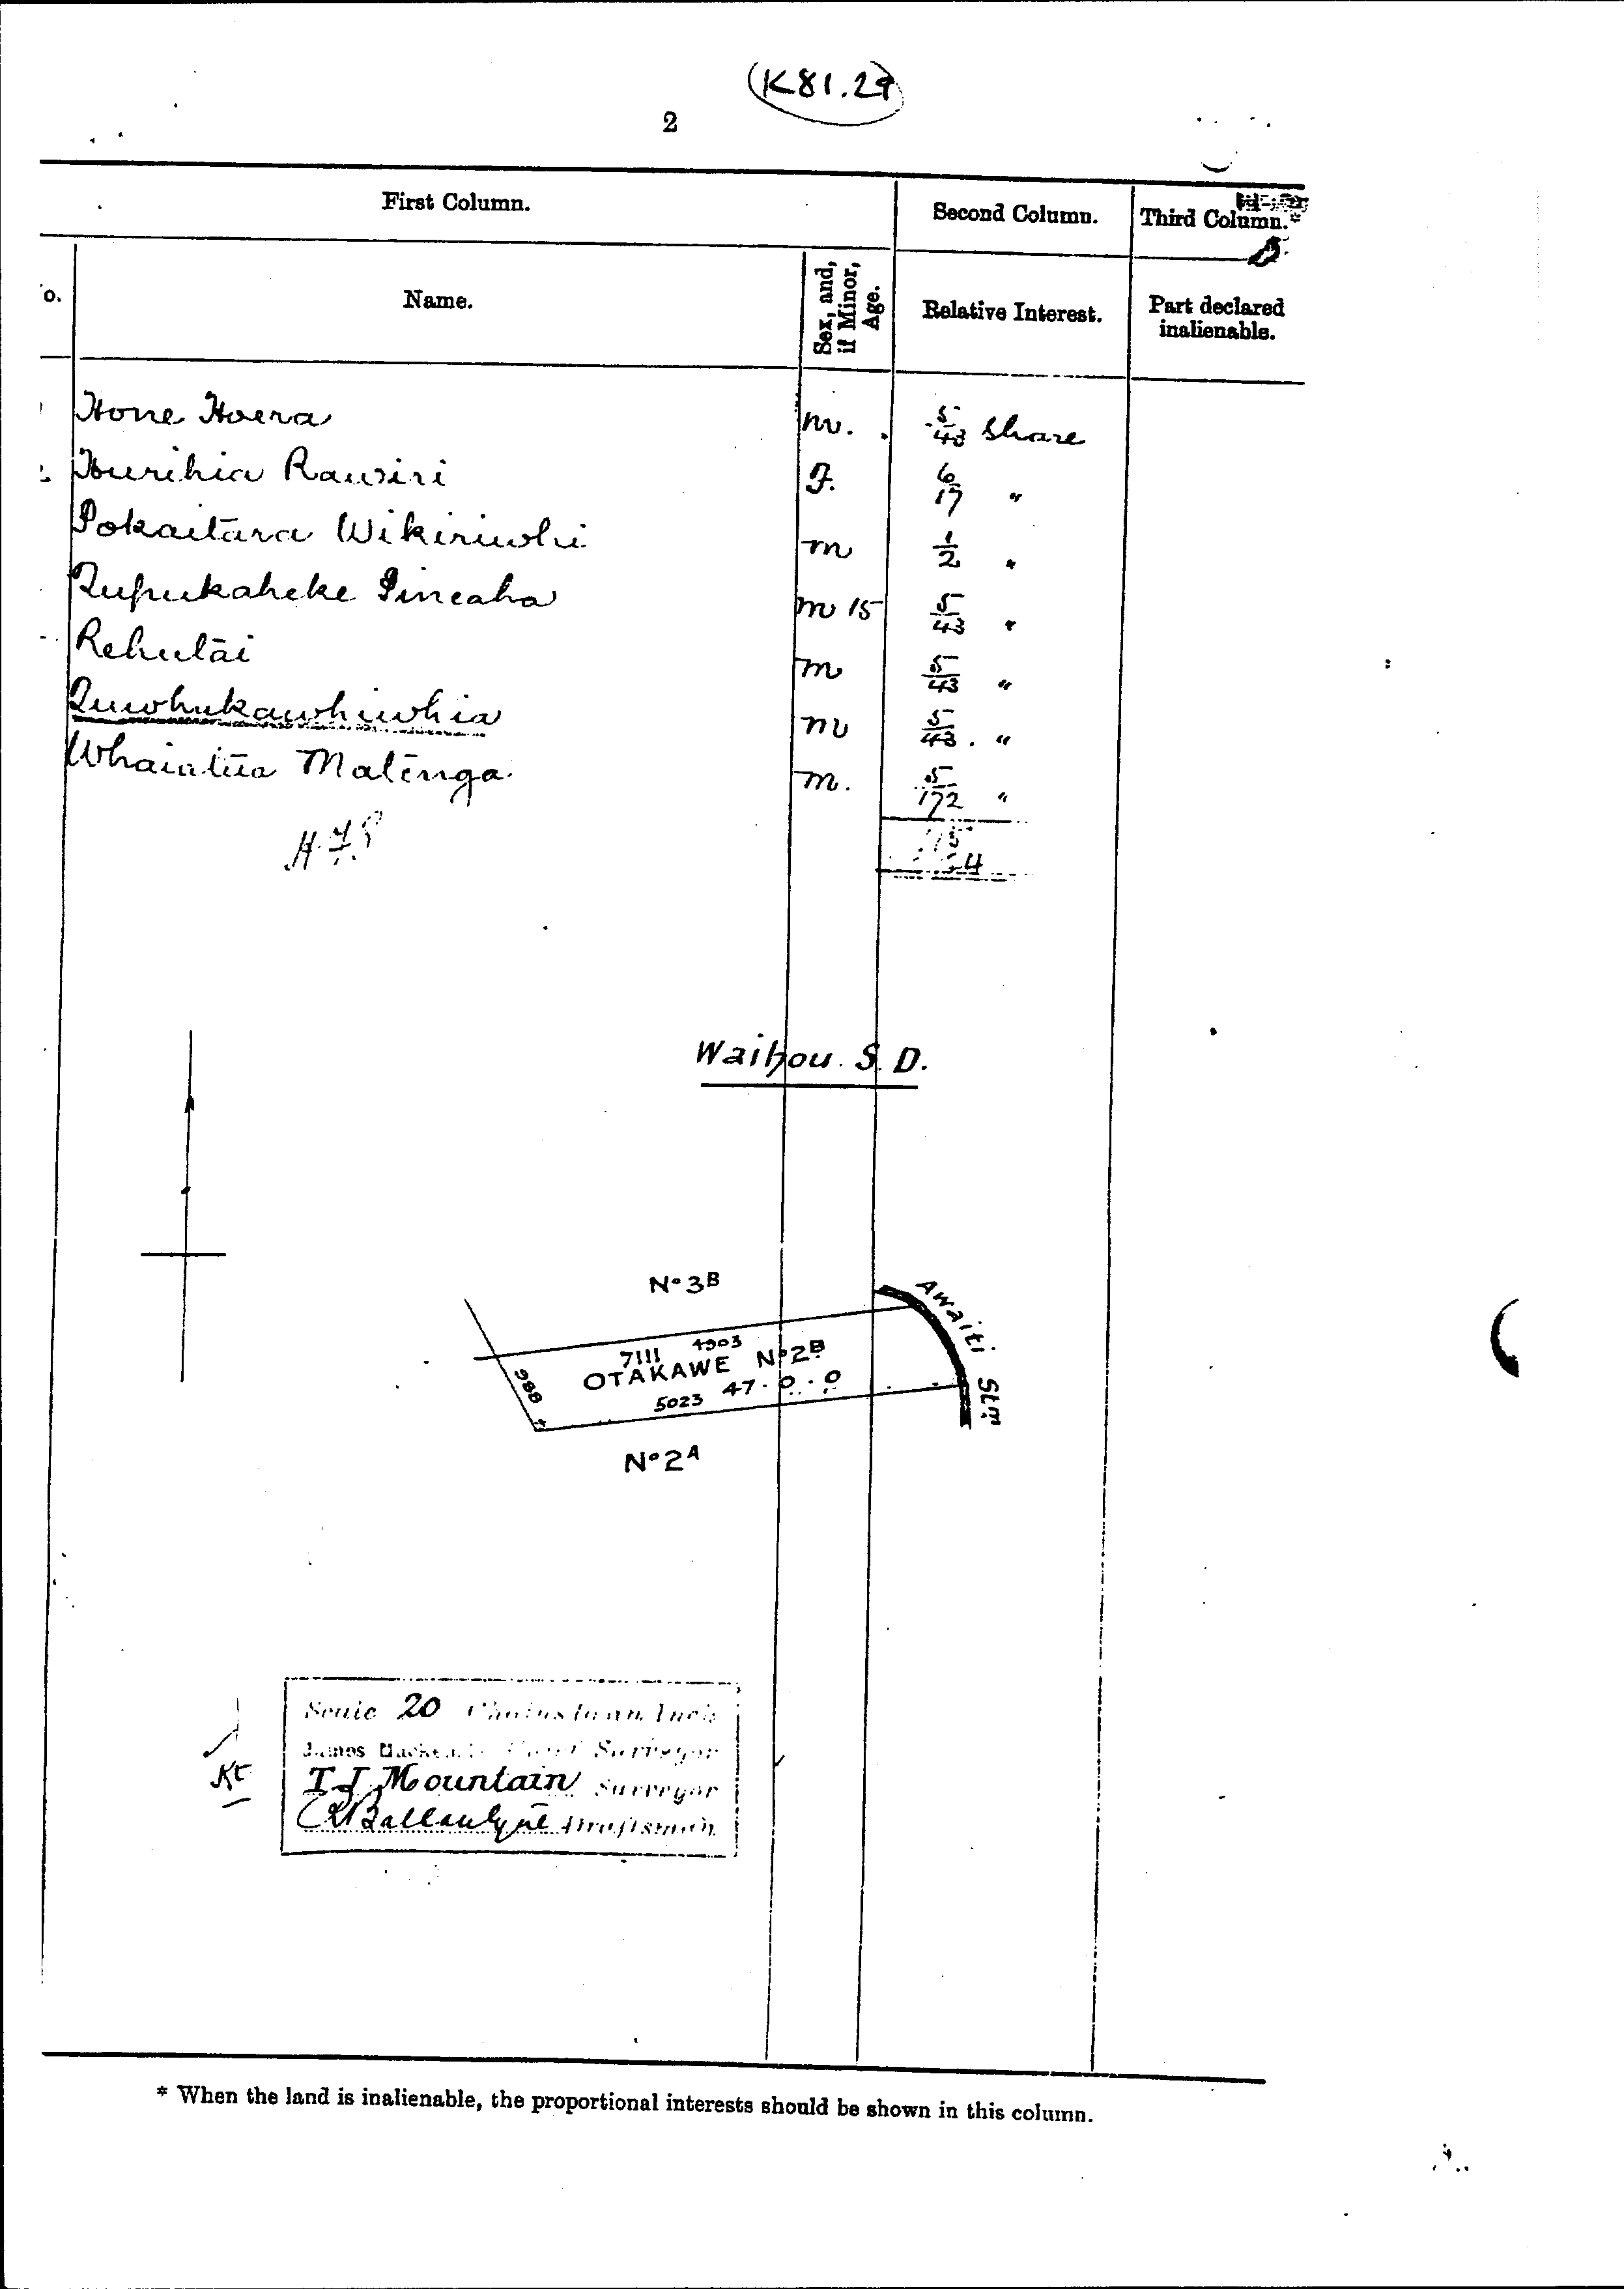 (K81.29)
2
First Column.
Second Column.
Third Column.*
o.
Name.
Sex, and, if Minor, Age.
Relative Interest.
Part declared inalienable.
Hone Hoera m. 5/43 Share
Hurihia Rawiri F. 6/17 "
Pokaitara Wikiriwhi m 1/2 "
Tupukaheke Pineaha m 15 5/43 "
Rehutai m 5/43 "
Tuwhukawhiwhia m 5/43 "
Whaiatua Matenga m. 5/172 "
Waihou. S. D.
No 3B
Awaiti Stm
7111 4903
OTAKAWE No 2B
988
5023 47.0.0
No 2A
Scale 20 Chains to an Inch
James Mackenzie Chief Surveyor
T J Mountain Surveyor
Ballantyne Draftsman
* When the land is inalienable, the proportional interests should be shown in this column.